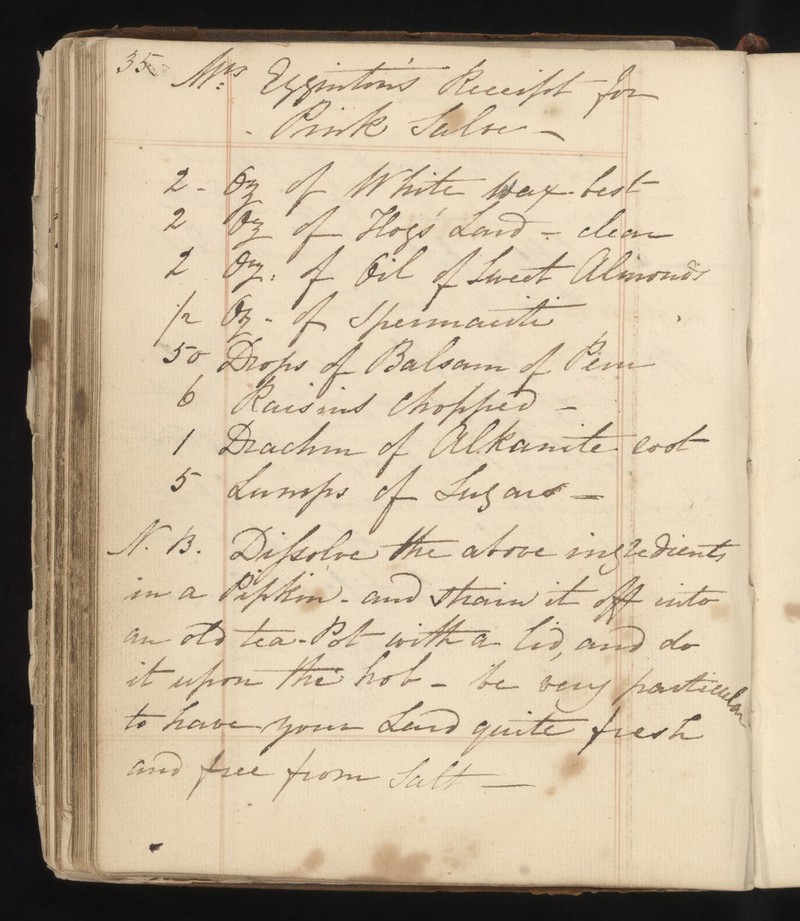 35
Mrs Egginton's Receipt for
- Pink Salve -
2 - Oz of White Wax - best
2 Oz of Hog's Lard - clear
2 Oz: of Oil of Sweet Almonds
1/2 Oz - of Spermaciti
50 Drops of Balsam of Peru
6 Raisins chopped -
1 Drachm of Alkanite root
5 Lumps of Sugar -
N. B. Dissolve the above ingredients
in a Pipkin - and strain it off into
an old tea-Pot with a lid, and do
it upon the hob - be very particular
to have your Lard quite fresh
and free from Salt -